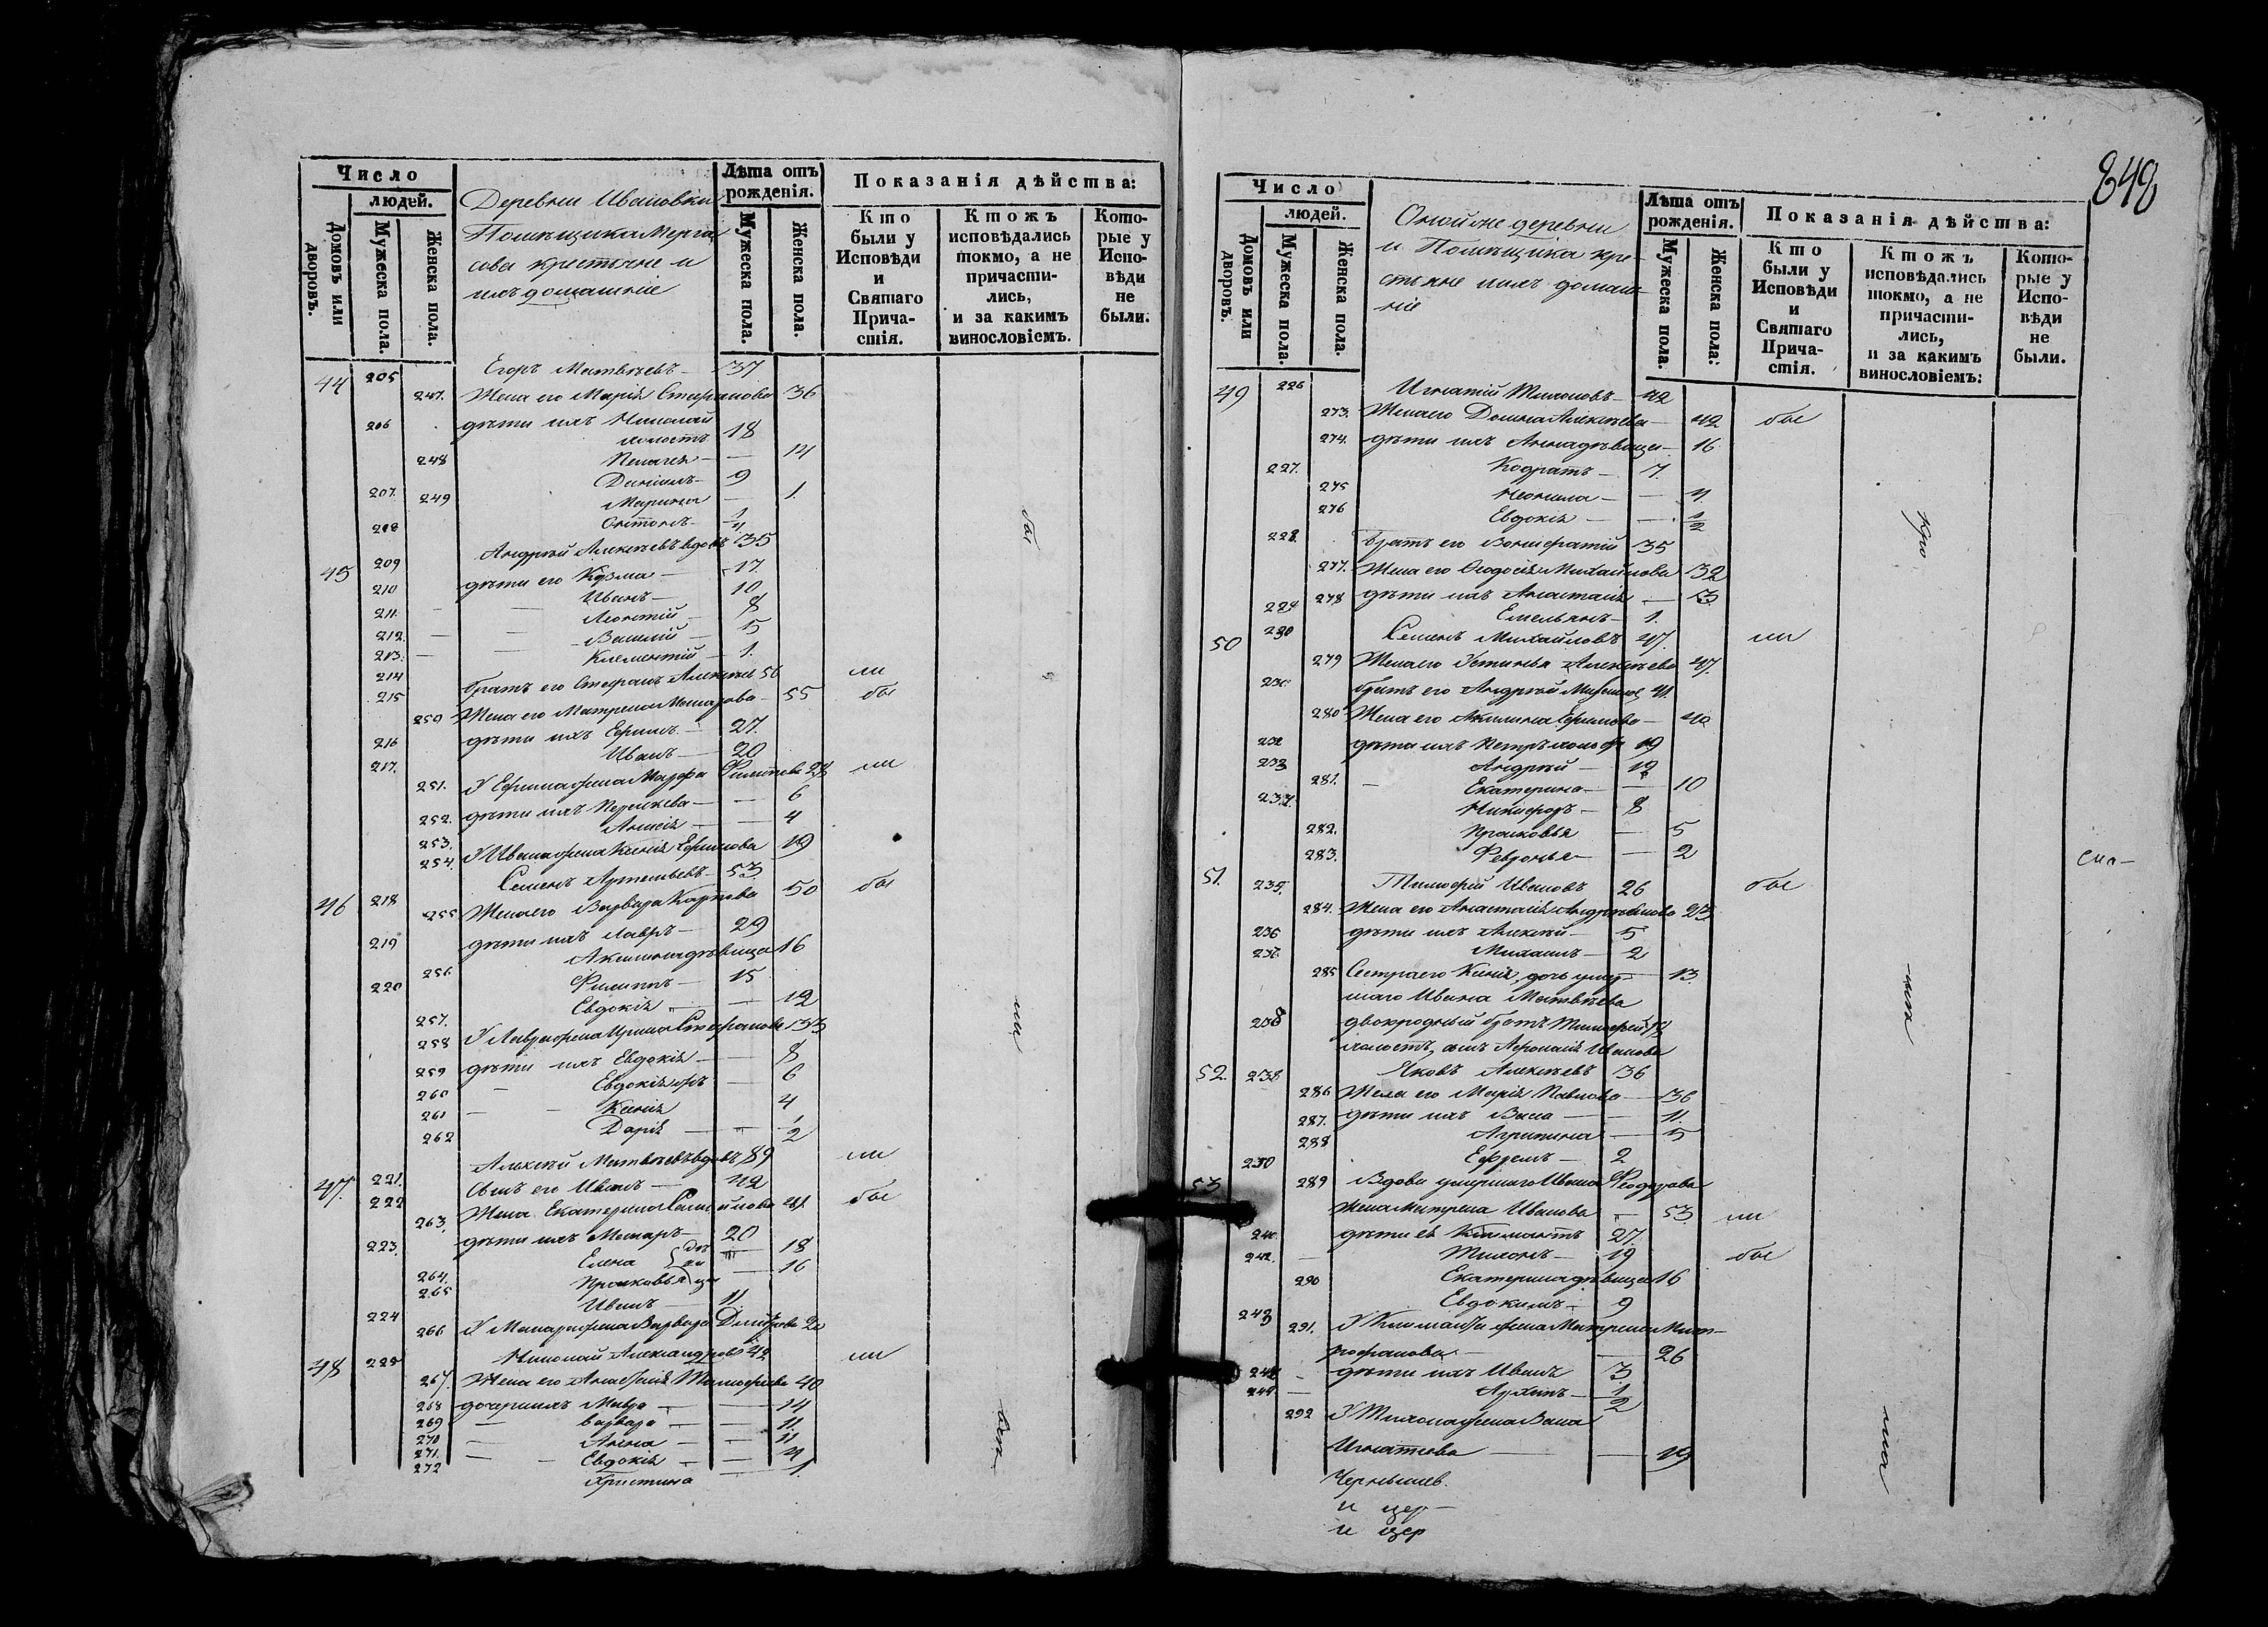 Число
людей.
Домовъ или дворовъ.
Мужеска пола.
Женска пола.
Деревни Ивановки
Помѣщика Мерга
сова крестьяне и
ихъ домашніе
Лѣта отъ рожденія.
Мужеска пола.
Женска пола.
Показанія дѣйства:
Кто были у Исповѣди и Святаго Причастія.
Ктожъ исповѣдались токмо, а не причастились, и за какимъ винословіемъ.
Которые у Исповѣди не были.
44 205 Егоръ Матвѣевъ 37
247. Жена его Марія Стефанова 36
206 дѣти ихъ Николай
холостъ 18
248 Пелагея 14
207. Даніилъ 9
249 Марина 1.
208 Антонъ 1/4
45 209 Андрей Алексѣевъ вдовъ 35
210 дѣти его Козма 17.
211. Иванъ 10
212. Леонтій 8
213. Василій 5
214 Климентій 1.
215 братъ его Стефанъ Алексѣи 56 ли
250 Жена его Матрена Макарова 55 бы
216 дѣти ихъ Ефимъ 27.
217. Иванъ 20
251. У Ефима жена Марфа Филипова 28 ли
252. дѣти ихъ 6
253. Анисія 4
254. У Ивана жена Ксенія Ефимова 19
46 218 Семенъ Артемьевъ 53
255 Жена его Варвара Карпова 50 бы
219 дѣти ихъ Лавръ 29
256 Акилина дѣвица 16
220 Филиппъ 15
257. Евдокія 12
258 У Лавра жена Ирина Стефанова 33
259 дѣти ихъ Евдокія 8
260 Евдокія 6
261 Ксенія 4
262 Дарія 1/2
47. 221. Алексѣй Матвѣевъ вдовъ 89 ли
222 Сынъ его Иванъ 42
263. Жена Екатерина 41. бы
223. дѣти ихъ Макаръ 20
264. Елена 18
265 Прасковья 16
224 Иванъ 11
266 У Макара жена Варвара Дмитрова 20
48 225 Николай Александровъ 42 ли
267. Жена его Анастасія Тимофеева 40
268 дочери ихъ Мавра 14
269 Варвара 11.
270 Анна 11
271. Евдокія 4
272 Христина 1.
848
Число
людей.
Домовъ или дворовъ.
Мужеска пола.
Женска пола.
Оной же деревни
и Помѣщика кре-
стьяне ихъ домаш
ніе
Лѣта отъ рожденія.
Мужеска пола.
Женска пола:
Показанія дѣйства:
Кто были у Исповѣди и Святаго Причастія.
Ктожъ исповѣдались токмо, а не причастились, и за какимъ винословіемъ:
Которые у Исповѣди не были.
49 226 Игнатій Тихоновъ 42
273. Жена его Домна Алексѣева 42 бы
274. дѣти ихъ Анна дѣвица 16
227. Кодратъ 7.
275 Неонила 4.
276 Евдокія 1/2
228. братъ его Вонифатій 35
277. Жена его Ѳеодосія Михайлова 32
278 дѣти ихъ Анастасія 3
229 Емельянъ 1.
50 230 Семенъ Михайловъ 47. ли
279 Жена его Устинья Алексѣева 47.
231. братъ его Андрей 41.
280 Жена его Акилина Ефимова 40
232 дѣти ихъ Петръ холос 19
233 Андрей 12
281. Екатерина 10
234. Никифоръ 8
282. Прасковья 5
283. Февронья 2
51. 235. Тимофей Ивановъ 26 бы
284. Жена его Анастасія 23
236 дѣти ихъ Алексѣй 5
237 Михаилъ 2
285 Сестра его Ксенія, дочь умер 13
шаго Ивана Матвѣева
238 двоюродный братъ Тимофей 19
холостъ, сынъ Афонасія Иванова
52. 238 Яковъ Алексѣевъ 36
286 Жена его Марія Павлова 36
287. дѣти ихъ Васа 11.
288 Агрипина 5
230 Ефремъ 2
53 289 Вдова умершаго Ивана Феодорова
жена Матрена Иванова 53 ли
240. дѣти ея Климантъ 27.
242. Тихонъ 19 бы
290 Екатерина дѣвица 16
243 Евдокимъ 9
291. У Климанта жена Матрена Мит-
рофанова 26
244 дѣти ихъ Иванъ 3
244. Архипъ 1/2
292 У Тихона жена Васа
Игнатьева 19
Чернышев.
и цер
и цер
Сил-